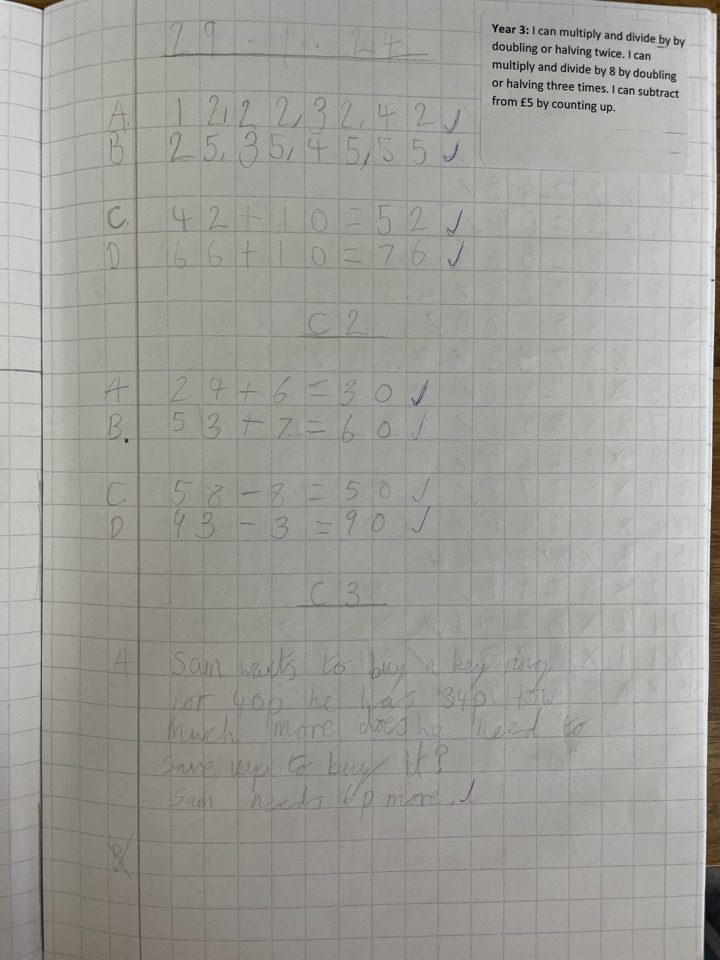 29 - 1 - 24
Year 3: I can multiply and divide by by
doubling or halving twice. I can
multiply and divide by 8 by doubling
or halving three times. I can subtract
from £5 by counting up.
A. 12,22,32,42 ✓
B 25,35,45,55 ✓
C. 42+10=52 ✓
D 66+10=76 ✓
C2
A 24+6=30 ✓
B. 53+7=60 ✓
C 58-8=50 ✓
D 93-3=90 ✓
C3
A Sam wants to buy a key ring
for 40p he has 34p. How
much more does he need to
save up to buy it?
Sam needs 6p more. ✓
B